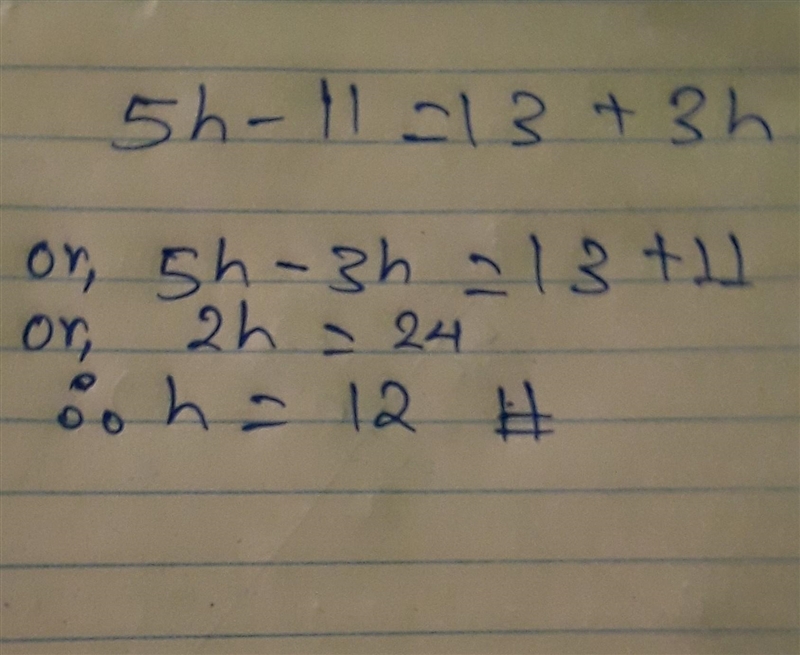 5h - 11 = 13 + 3h
or, 5h - 3h = 13 + 11
or, 2h = 24
∴ h = 12 #